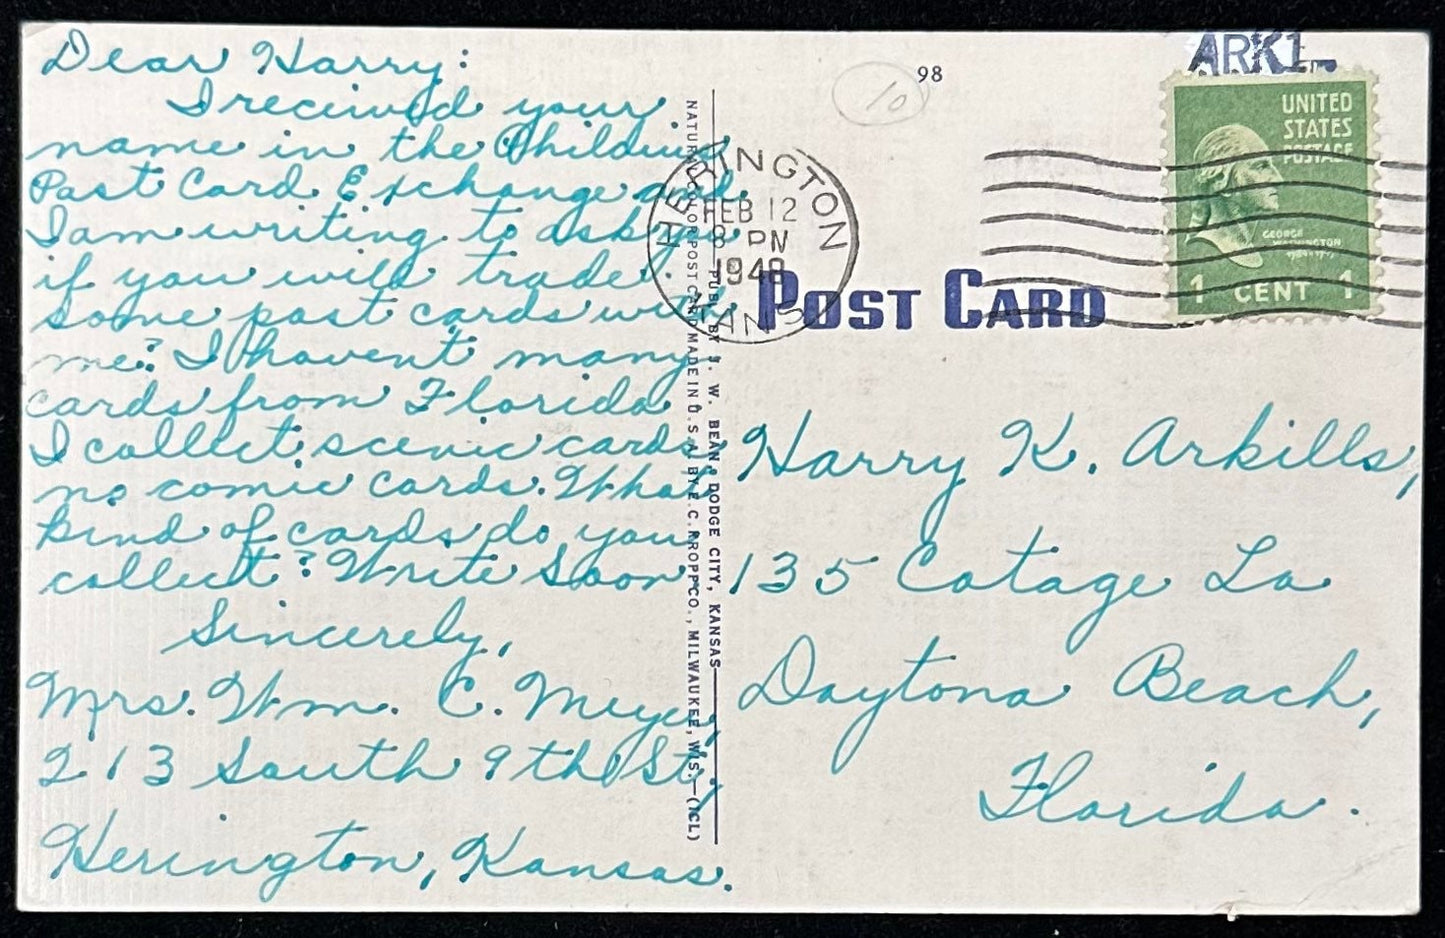 Dear Harry:
I received your
name in the Childrens
Post Card Exchange and
I am writing to ask you
if you will trade
some post cards with
me? I havent many
cards from Florida.
I collect scenic cards,
no comic cards. What
kind of cards do you
collect? Write Soon
Sincerely,
Mrs. Wm. C. Meyer,
213 South 9th St.,
Herington, Kansas.
NATURAL COLOR POST CARD MADE IN U.S.A. BY E. C. KROPP CO., MILWAUKEE, WIS.—(ICL)
PUB. BY J. W. BEAN, DODGE CITY, KANSAS
ARKL.
98
10
HERINGTON
FEB 12
8 PM
1948
KANS
UNITED
STATES
POSTAGE
GEORGE
WASHINGTON
1 CENT 1
POST CARD
Harry K. Arkills,
135 Cotage La
Daytona Beach,
Florida.